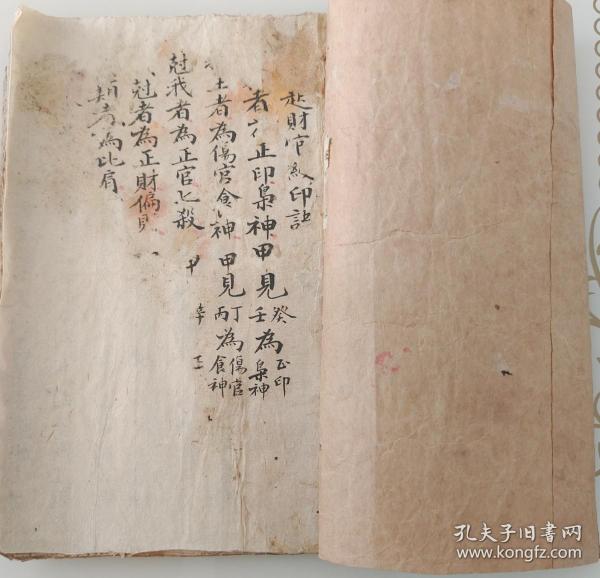 起財官	印訣
者為正印梟神甲見癸壬為正印梟神
者為傷官食神甲見丁丙為傷官食神
尅我者為正官七殺 甲 辛
尅者為正財偏
者為比肩
孔夫子旧书网
www.kongfz.com